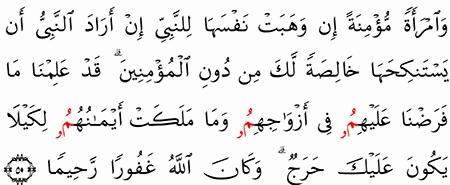 وَٱمْرَأَةً مُّؤْمِنَةً إِن وَهَبَتْ نَفْسَهَا لِلنَّبِىِّ إِنْ أَرَادَ ٱلنَّبِىُّ أَن
يَسْتَنكِحَهَا خَالِصَةً لَّكَ مِن دُونِ ٱلْمُؤْمِنِينَ ۗ قَدْ عَلِمْنَا مَا
فَرَضْنَا عَلَيْهِمُۥ فِىٓ أَزْوَٰجِهِمُۥ وَمَا مَلَكَتْ أَيْمَـٰنُهُمُۥ لِكَيْلَا
يَكُونَ عَلَيْكَ حَرَجٌ ۗ وَكَانَ ٱللَّهُ غَفُورًا رَّحِيمًا ٥٠